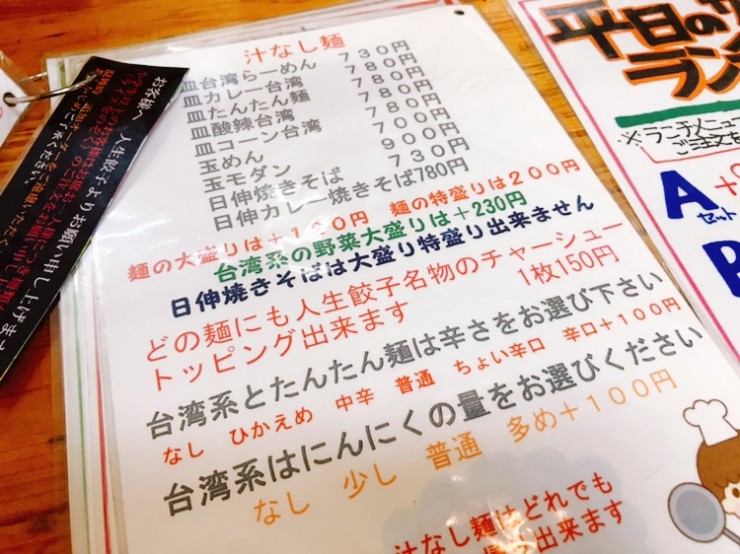 汁なし麺
皿台湾らーめん 730円
皿カレー台湾 780円
皿たんたん麺 780円
皿酸辣台湾 780円
皿コーン台湾 780円
玉めん 700円
玉モダン 900円
日伸焼きそば 730円
日伸カレー焼きそば780円
麺の大盛りは+100円 麺の特盛りは200円
台湾系の野菜大盛りは+230円
日伸焼きそばは大盛り特盛り出来ません
どの麺にも人生餃子名物のチャーシュー
トッピング出来ます 1枚150円
台湾系とたんたん麺は辛さをお選び下さい
なし ひかえめ 中辛 普通 ちょい辛口 辛口+100円
台湾系はにんにくの量をお選びください
なし 少し 普通 多め+100円
汁なし麺はどれでも
出来ます
お客様へ 人生餃子よりお願い申し上げます
平日の
ラン
※ランチメニュー
ご注文を
A
セット
B